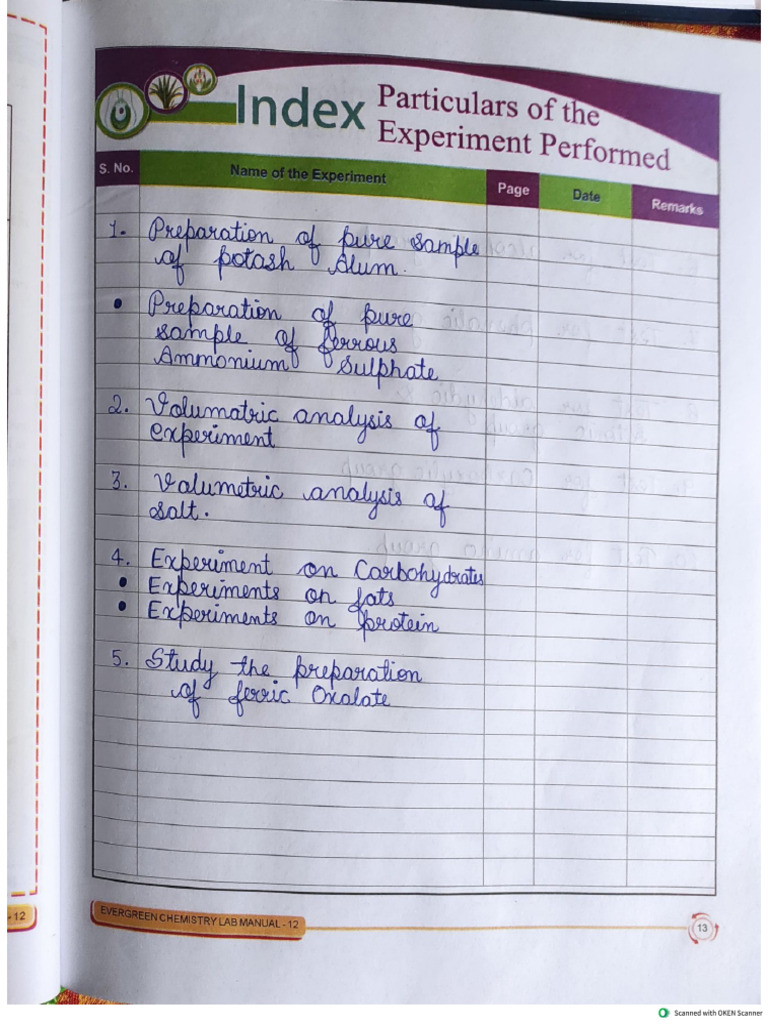 Index
Particulars of the
Experiment Performed
S. No. Name of the Experiment Page Date Remarks
1. Preparation of pure sample
of potash Alum.
• Preparation of pure
sample of ferrous
Ammonium Sulphate
2. Volumatric analysis of
experiment
3. Valumetric analysis of
salt.
4. Experiment on Carbohydrates
• Experiments on fats
• Experiments on protein
5. Study the preparation
of ferric Oxalate
- 12
EVERGREEN CHEMISTRY LAB MANUAL - 12
13
Scanned with OKEN Scanner